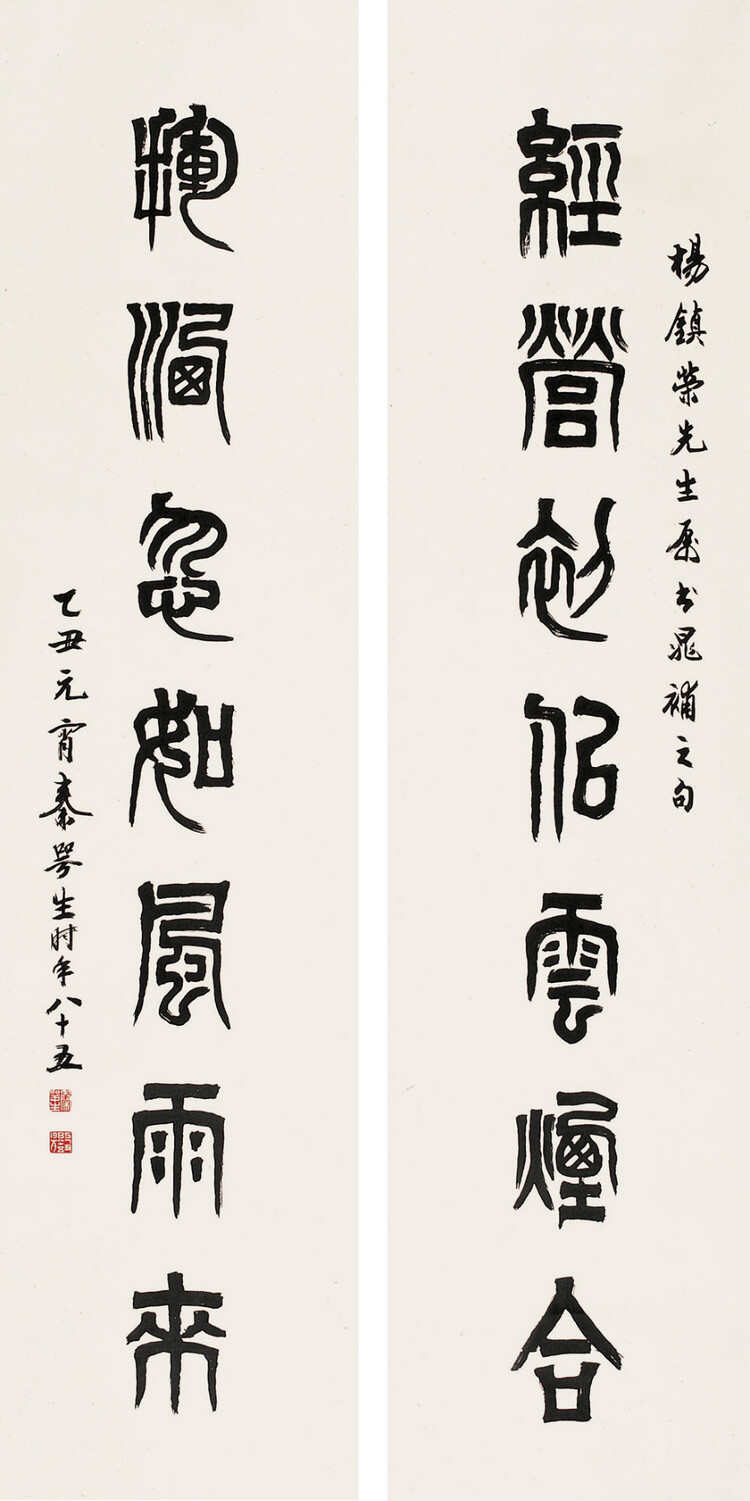 楊鎮榮先生属书晁補之句
經營初似雲煙合
揮洒忽如風雨來
乙丑元宵秦咢生时年八十五